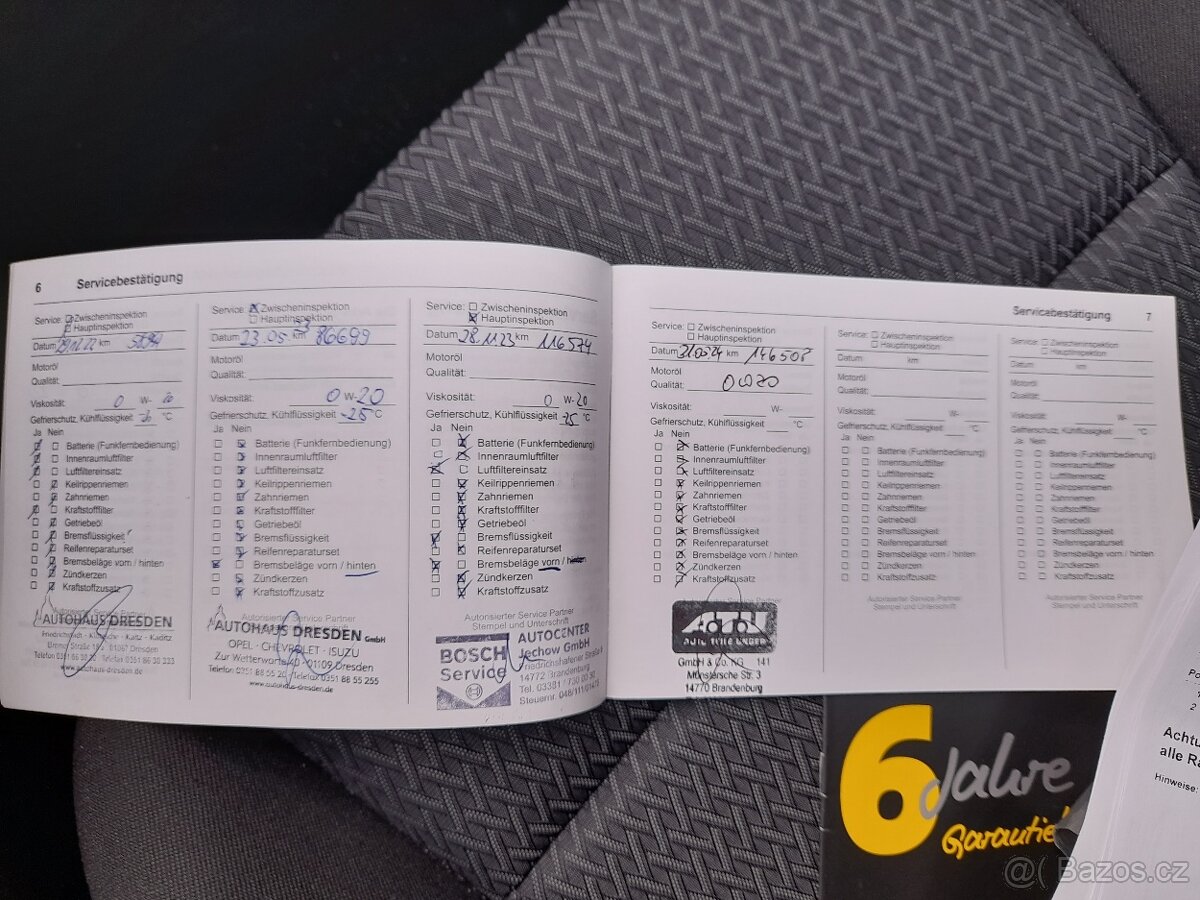 6 Servicebestätigung
Service: Zwischeninspektion
Hauptinspektion
Datum km
Motoröl
Qualität:
Viskosität: 0 W-
Gefrierschutz, Kühlflüssigkeit °C
Ja Nein
Batterie (Funkfernbedienung)
Innenraumluftfilter
Luftfiltereinsatz
Keilrippenriemen
Zahnriemen
Kraftstofffilter
Getriebeöl
Bremsflüssigkeit
Reifenreparaturset
Bremsbeläge vorn / hinten
Zündkerzen
Kraftstoffzusatz
Autorisierter Service Partner
AUTOHAUS DRESDEN
www.autohaus-dresden.de
Service: Zwischeninspektion
Hauptinspektion
Datum 23.05 km 86699
Motoröl
Qualität:
Viskosität: 0 W-20
Gefrierschutz, Kühlflüssigkeit -25 °C
Ja Nein
Batterie (Funkfernbedienung)
Innenraumluftfilter
Luftfiltereinsatz
Keilrippenriemen
Zahnriemen
Kraftstofffilter
Getriebeöl
Bremsflüssigkeit
Reifenreparaturset
Bremsbeläge vorn / hinten
Zündkerzen
Kraftstoffzusatz
Autorisierter Service Partner
AUTOHAUS DRESDEN GmbH
OPEL · CHEVROLET · ISUZU
Zur Wetterwarte 01109 Dresden
Telefon 0351 88 55 20 Telefax 0351 88 55 255
www.autohaus-dresden.de
Service: Zwischeninspektion
Hauptinspektion
Datum 28.11.23 km 116574
Motoröl
Qualität:
Viskosität: 0 W-20
Gefrierschutz, Kühlflüssigkeit °C
Ja Nein
Batterie (Funkfernbedienung)
Innenraumluftfilter
Luftfiltereinsatz
Keilrippenriemen
Zahnriemen
Kraftstofffilter
Getriebeöl
Bremsflüssigkeit
Reifenreparaturset
Bremsbeläge vorn / hinten
Zündkerzen
Kraftstoffzusatz
Autorisierter Service Partner
Stempel und Unterschrift
BOSCH
Service
AUTOCENTER
Jechow GmbH
Friedrichshafener Straße
14772 Brandenburg
Tel. 03381 / 730 00 50
Steuernr. 048/111/01475
Servicebestätigung 7
Service: Zwischeninspektion
Hauptinspektion
Datum km 146508
Motoröl
Qualität:
Viskosität: W-
Gefrierschutz, Kühlflüssigkeit °C
Ja Nein
Batterie (Funkfernbedienung)
Innenraumluftfilter
Luftfiltereinsatz
Keilrippenriemen
Zahnriemen
Kraftstofffilter
Getriebeöl
Bremsflüssigkeit
Reifenreparaturset
Bremsbeläge vorn / hinten
Zündkerzen
Kraftstoffzusatz
GmbH & Co. KG 141
Münstersche Str. 3
14770 Brandenburg
Service: Zwischeninspektion
Hauptinspektion
Datum km
Motoröl
Qualität:
Viskosität: W-
Gefrierschutz, Kühlflüssigkeit °C
Ja Nein
Batterie (Funkfernbedienung)
Innenraumluftfilter
Luftfiltereinsatz
Keilrippenriemen
Zahnriemen
Kraftstofffilter
Getriebeöl
Bremsflüssigkeit
Reifenreparaturset
Bremsbeläge vorn / hinten
Zündkerzen
Kraftstoffzusatz
Autorisierter Service Partner
Stempel und Unterschrift
Service: Zwischeninspektion
Hauptinspektion
Datum km
Motoröl
Qualität:
Viskosität: W-
Gefrierschutz, Kühlflüssigkeit °C
Ja Nein
Batterie (Funkfernbedienung)
Innenraumluftfilter
Luftfiltereinsatz
Keilrippenriemen
Zahnriemen
Kraftstofffilter
Getriebeöl
Bremsflüssigkeit
Reifenreparaturset
Bremsbeläge vorn / hinten
Zündkerzen
Kraftstoffzusatz
Autorisierter Service Partner
Stempel und Unterschrift
6 Jahre
Garantie!
Achtu
alle Ra
Hinweise:
Bazos.cz